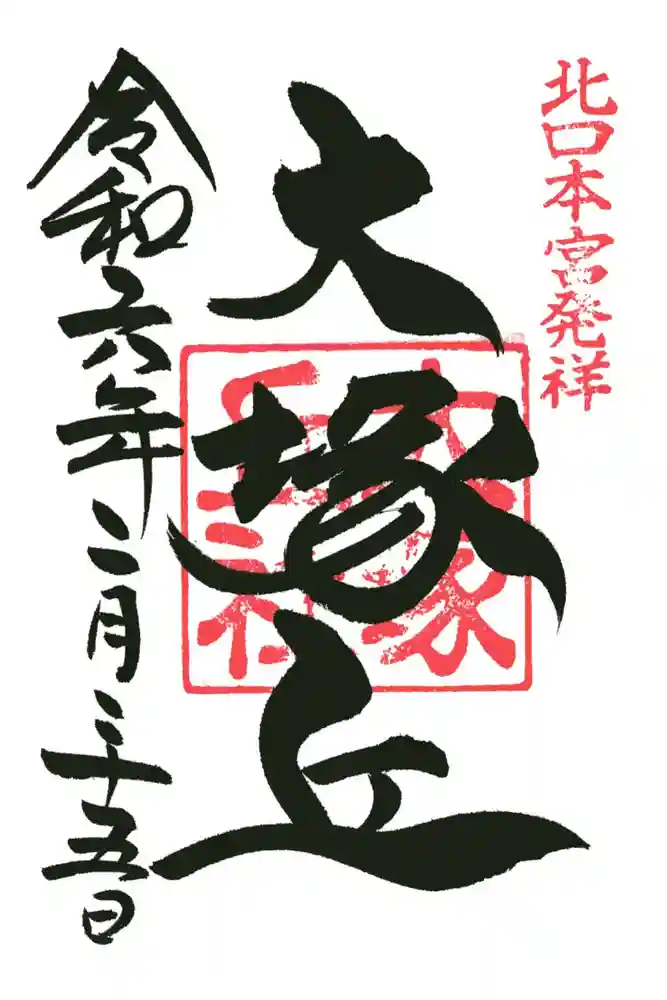 北口本宮発祥
大塚丘
令和六年二月二十五日